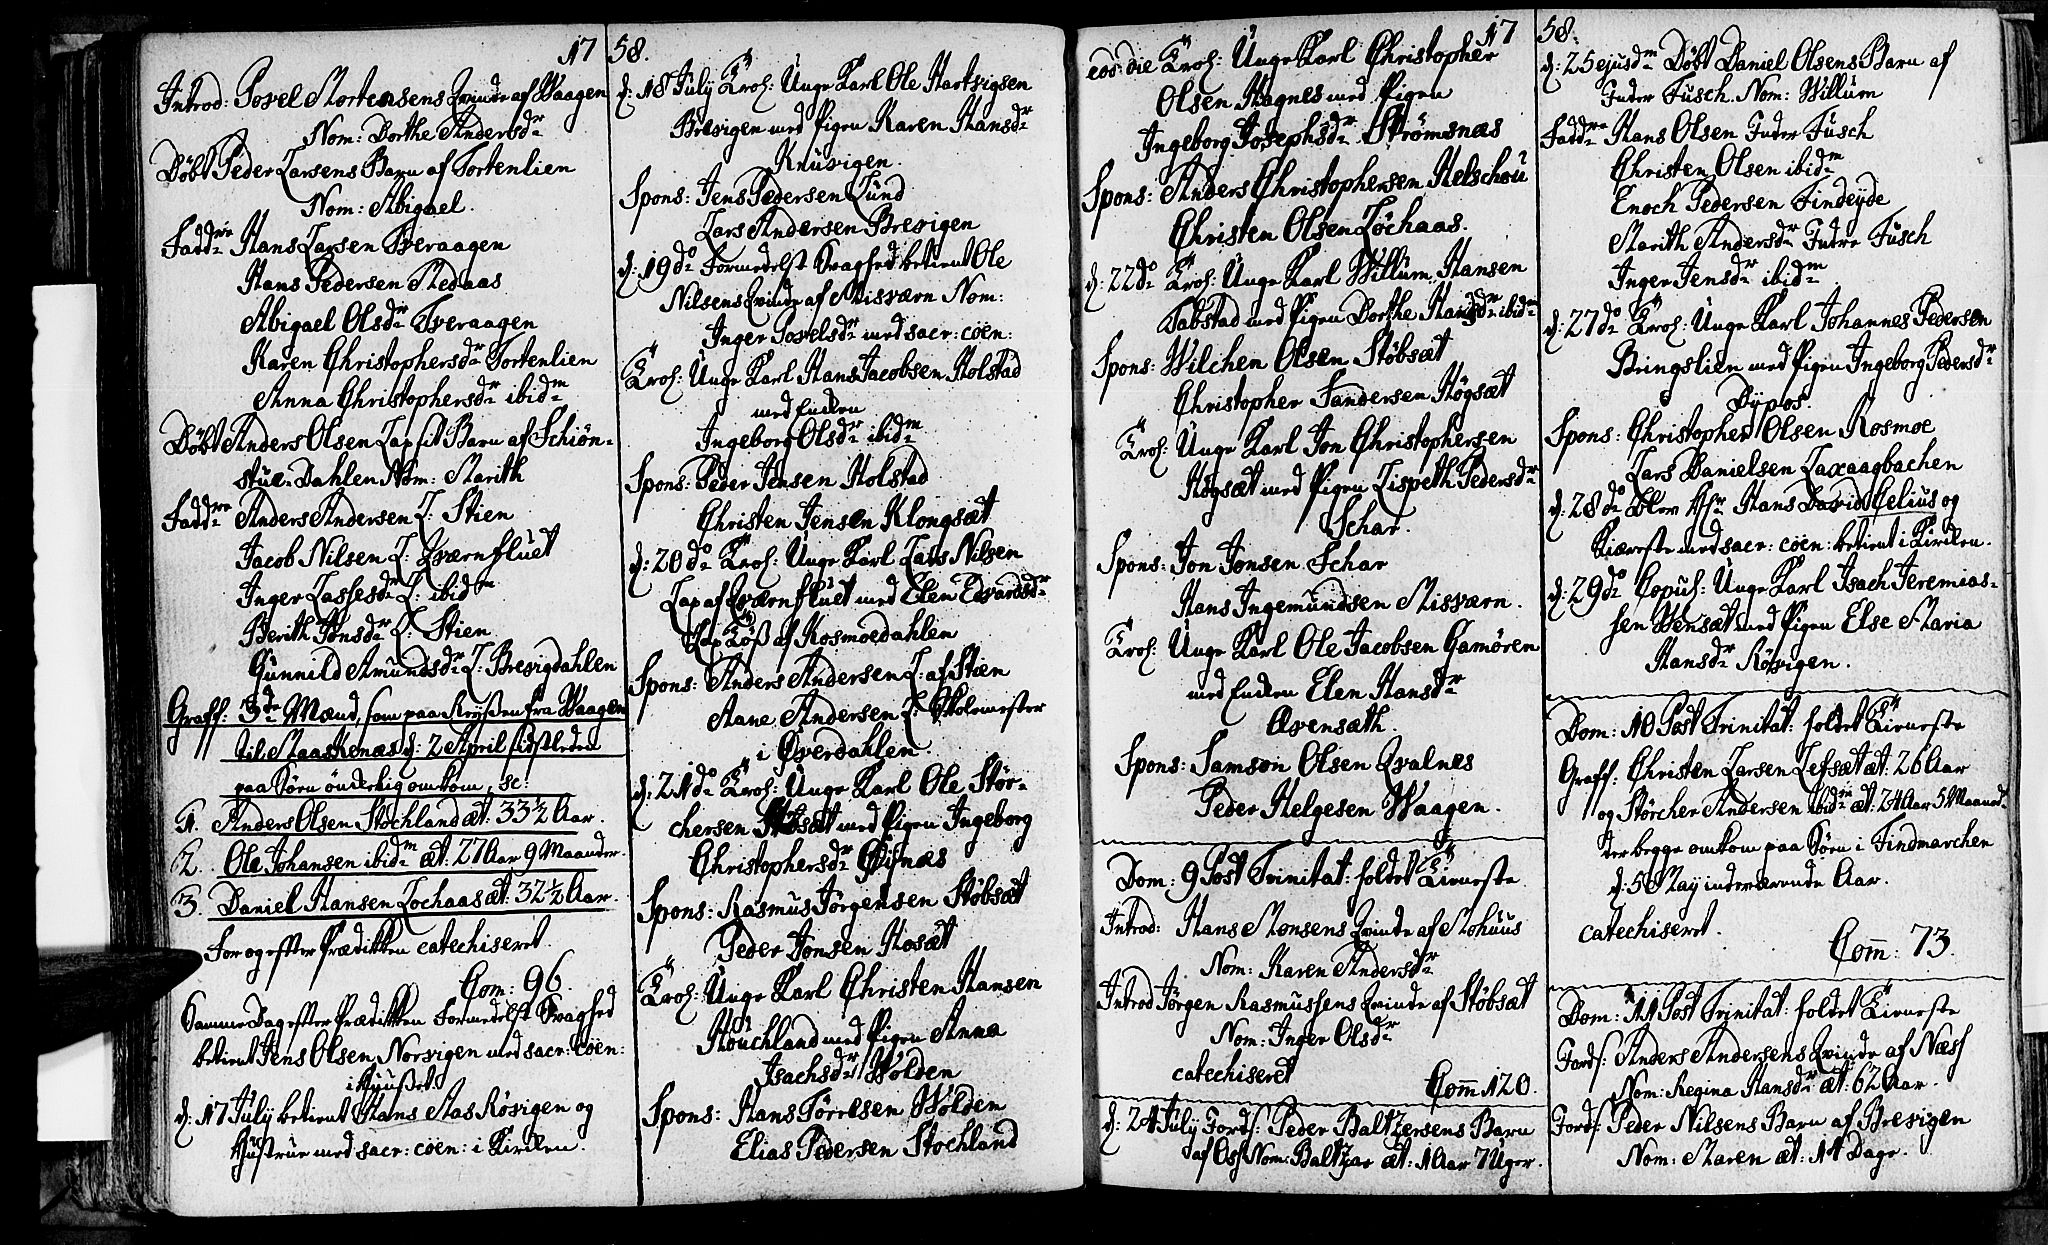 17
Introd: Povel Mortensens Qvinde af Waagen
Nom: Dorthe Andersdr
Döbt Peder Larsens Barn af Tortenlien
Nom: Abigael.
Faddre Hans Larsen Tveraagen
Hans Pedersen Medaas
Abigael Olsdr Tveraagen
Karen Christophersdr Tortenlien
Anna Christophersdr ibidm
Döbt Anders Olsen Lapfin Barn af Schiön-
stue-Dahlen Nom: Marith
Faddre Anders Andersen L: Stien
Jacob Nilsen L: Qværnfluet
Inger Lassesdr L: ibidm
Berith Jonsdr L: Stien
Gunnild Amundsdr L: Brevigdahlen
Graff: 3de Mænd, som paa Reyßen fra Waagen
til Maaskenæs d: 2 April sidstleden
paa Søen ynckelig omkom, sc:
1. Anders Olsen Stochland æt: 33 1/2 Aar.
2. Ole Johansen ibidm æt: 27 Aar 9 Maander.
3. Daniel Hansen Lochaas æt: 32 1/2 Aar.
For og effter Prædiken catechiseret.
Com: 96.
Samme Dag effter Prædiken Formedelst Svaghed
betient Jens Olsen Norvigen med sacr: coen:
i Huuset.
d: 17 July betient Hans Aas Røsvigen og
Hustrue med sacr: coen: i Kirken.
58.
d: 18 July Trol: Unge Karl Ole Hartvigsen
Brevigen med Pigen Karen Hansdr
Kruvigen.
Spons: Jens Pedersen Lund
Lars Andersen Brevigen
d: 19do Formedelst Svaghed betient Ole
Nilsens Qvinde af Misværn Nom:
Inger Povelsdr med sacr: coen:
Trol: Unge Karl Hans Jacobsen Holstad
med Enken
Ingeborg Olsdr ibidm
Spons: Peder Jensen Holstad
Christen Jensen Klongsæt
d: 20do Trol: Unge Karl Lars Nilsen
Lap af Qværnfluet med Elen Edvardsdr
Lap Töß af Kosmoedahlen
Spons: Anders Andersen L: af Stien
Aane Andersen L: Skolemester
i Øverdahlen.
d: 21do Trol: Unge Karl Ole Stör-
chersen Stöbsæt med Pigen Ingeborg
Christophersdr
Spons: Rasmus Jørgensen Stöbsæt
Peder Jonsen Hosæt
Trol: Unge Karl Christen Hansen
Stöuchland med Pigen Anna
Isachsdr Wolden
Spons: Hans Törresen Wolden
Elias Pedersen Stochland
17
eod: die Trol: Unge Karl Christopher
Olsen Hagnes med Pigen
Ingeborg Josephsdr Strömsnæs
Spons: Anders Christophersen Melschou
Christen Olsen Löchaas.
d: 22do Trol: Unge Karl Willum Hansen
Tabstad med Pigen Dorthe Hansdr ibidm
Spons: Wilchen Olsen Stöbsæt
Christopher Sandersen Högsæt
Trol: Unge Karl Jon Christophersen
Högsæt med Pigen Lispeth Pedersdr
Schar.
Spons: Jon Jonsen Schar
Hans Ingemundsen Misværn.
Trol: Unge Karl Ole Jacobsen Gamören
med Enken Elen Hansdr
Evensæth.
Spons: Samson Olsen Qvalnes
Peder Helgesen Waagen.
Dom: 9 Post Trinitat: holdet Tieneste
Introd: Hans Monsens Qvinde af Mohuus
Nom: Karen Andersdr
Introd Jörgen Rasmussens Qvinde af Stöbsæt
Nom: Inger Olsdr
catechiseret
Com 120.
d: 24 July Jords: Peder Baltzersens Barn
af Os Nom: Baltzar æt: 1 Aar 7 Uger.
58.
d: 25 ejusdm Döbt Daniel Olsens Barn af
Indre Fusch. Nom: Willum
Faddre Hans Olsen Indre Fusch
Christen Olsen ibidm
Enoch Pedersen Findeyde
Marith Andersdr Indre Fusch
Inger Jensdr ibidm
d: 27do Trol: Unge Karl Johannes Pedersen
Bringslien med Pigen Ingeborg Pedersdr
Dypos.
Spons: Christopher Olsen Kosmoe
Lars Danielsen Laxaagbachen
d: 28do blev Hr Hans David Celius og
Kiæreste med sacr: coen: betient i Kirken.
d: 29do Copul: Unge Karl Isach Jeremias-
sen Wensæt med Pigen Else Maria
Hansdr Røsvigen.
Dom: 10 Post Trinitat: holdet Tieneste
Graff: Christen Larsen Lefsæt æt: 26 Aar
og Störcher Andersen ibidm æt: 24 Aar 5 Maandr
der begge omkom paa Søen i Findmarchen
d: 5 May indeværende Aar.
catechiseret.
Com: 73.
Dom: 11 Post Trinitat: holdet Tieneste
Jords: Anders Andersens Qvinde af Næss
Nom: Regina Hansdr æt: 62 Aar.
Jords: Peder Nilsens Barn af Brevigen
Nom: Maren æt: 14 Dage.